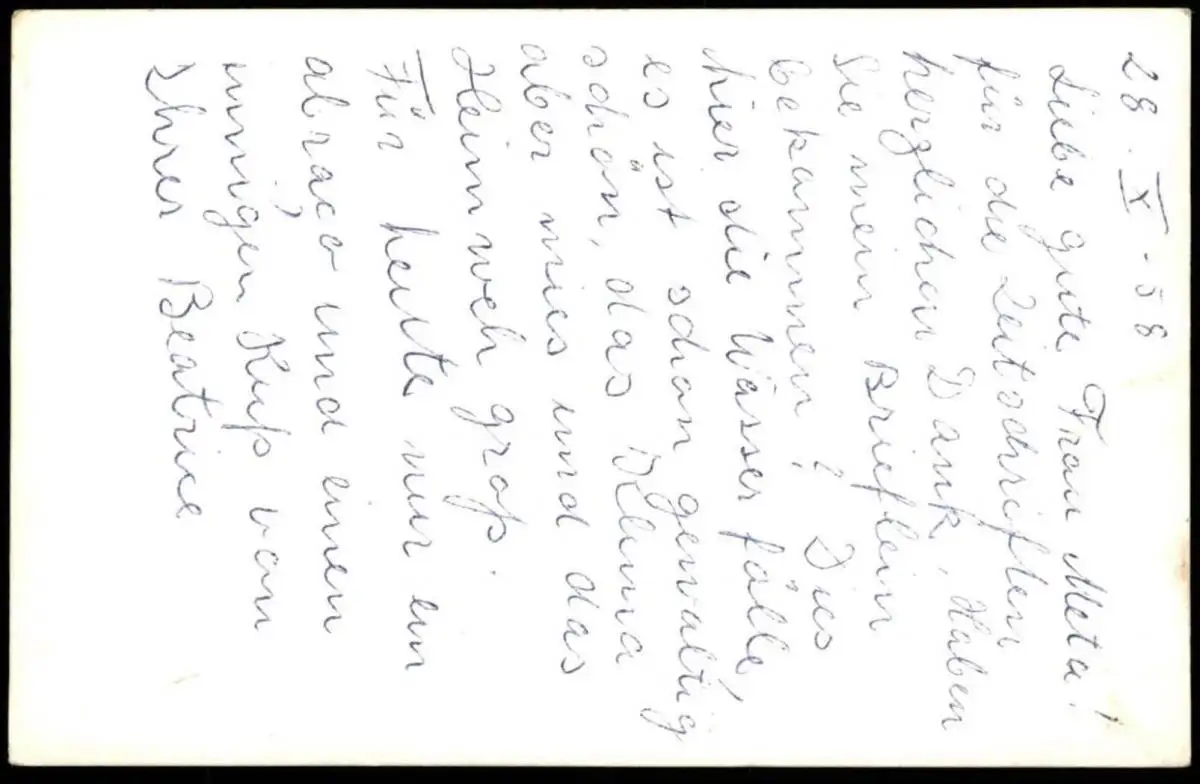 28. X. - 58
Liebe gute Frau Meta!
für die Zeitschriften
herzlichen Dank, Haben
Sie mein Brieflein
bekommen? Dies
hier die Wasserfälle,
es ist schon gewaltig
schön, das Klima
aber mies und das
Heimweh groß.
Für heute nur ein
abraço und einen
innigen Kuß von
Ihrer Beatrice